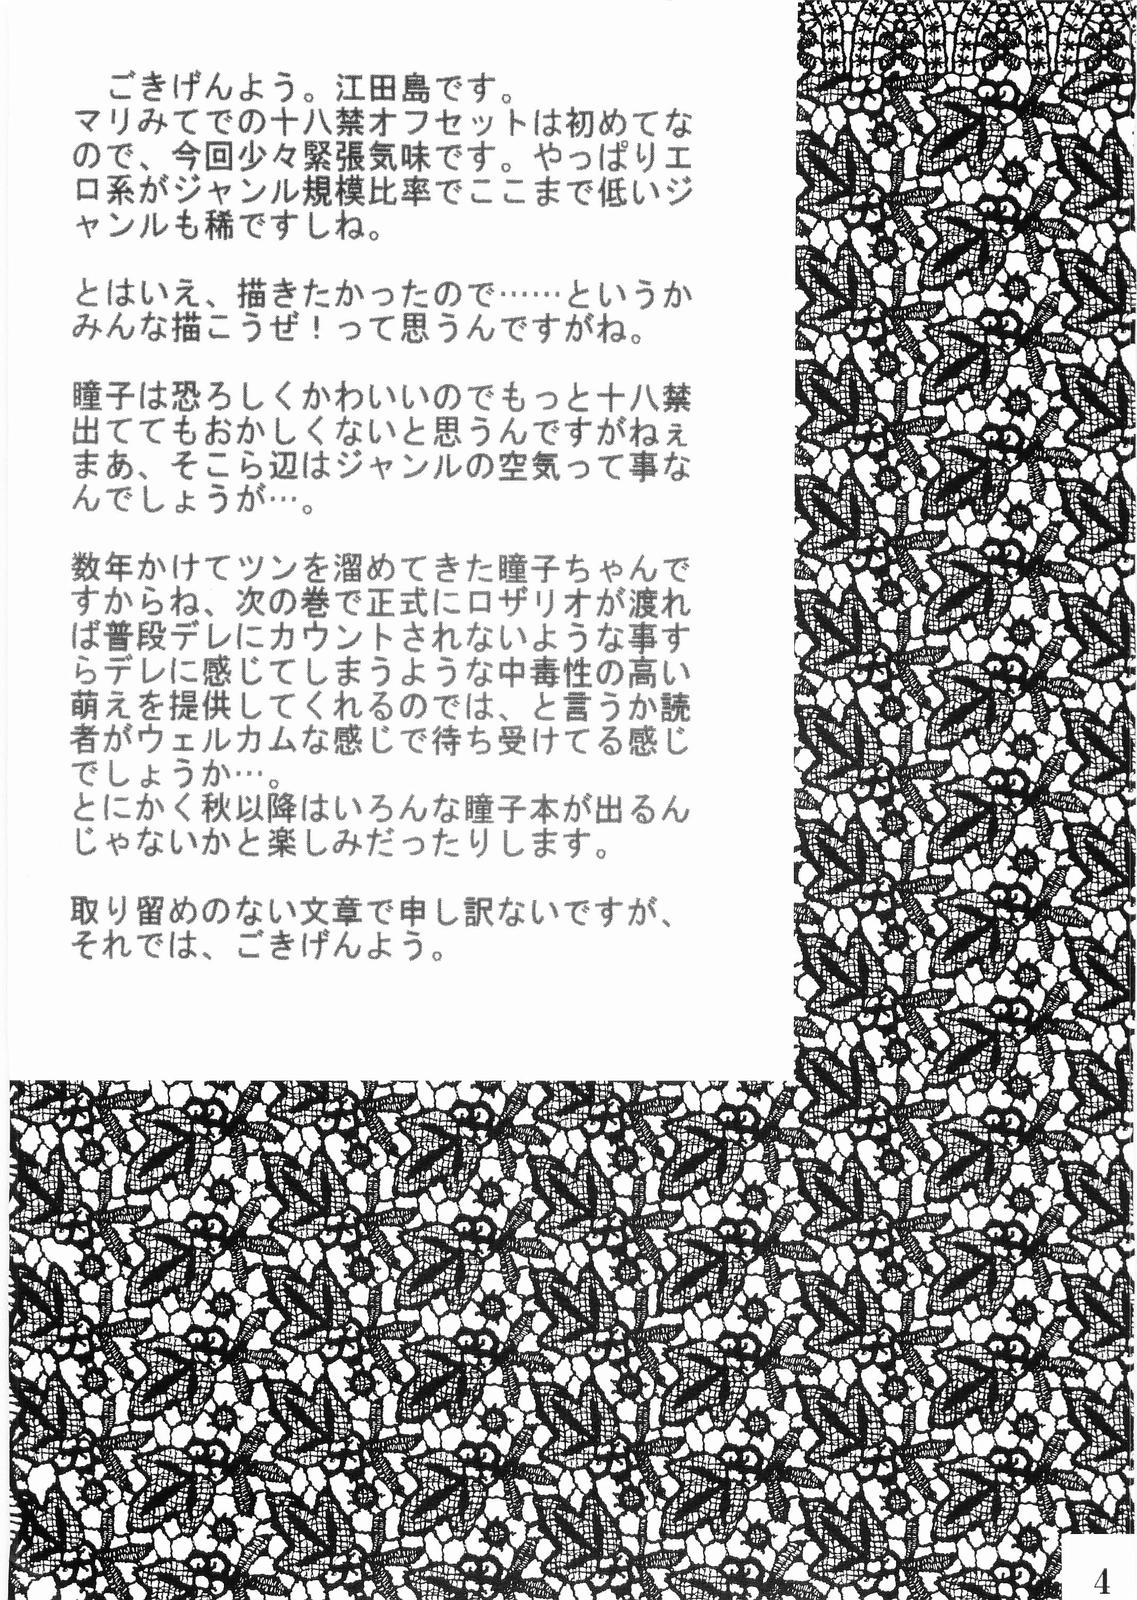 ごきげんよう。江田島です。
マリみてでの十八禁オフセットは初めてな
ので、今回少々緊張気味です。やっぱりエ
ロ系がジャンル規模比率でここまで低いジ
ャンルも稀ですしね。
とはいえ、描きたかったので……というか
みんな描こうぜ！って思うんですがね。
瞳子は恐ろしくかわいいのでもっと十八禁
出ててもおかしくないと思うんですがねぇ
まあ、そこら辺はジャンルの空気って事な
んでしょうが…。
数年かけてツンを溜めてきた瞳子ちゃんで
すからね、次の巻で正式にロザリオが渡れ
ば普段デレにカウントされないような事す
らデレに感じてしまうような中毒性の高い
萌えを提供してくれるのでは、と言うか読
者がウェルカムな感じで待ち受けてる感じ
でしょうか…。
とにかく秋以降はいろんな瞳子本が出るん
じゃないかと楽しみだったりします。
取り留めのない文章で申し訳ないですが、
それでは、ごきげんよう。
4